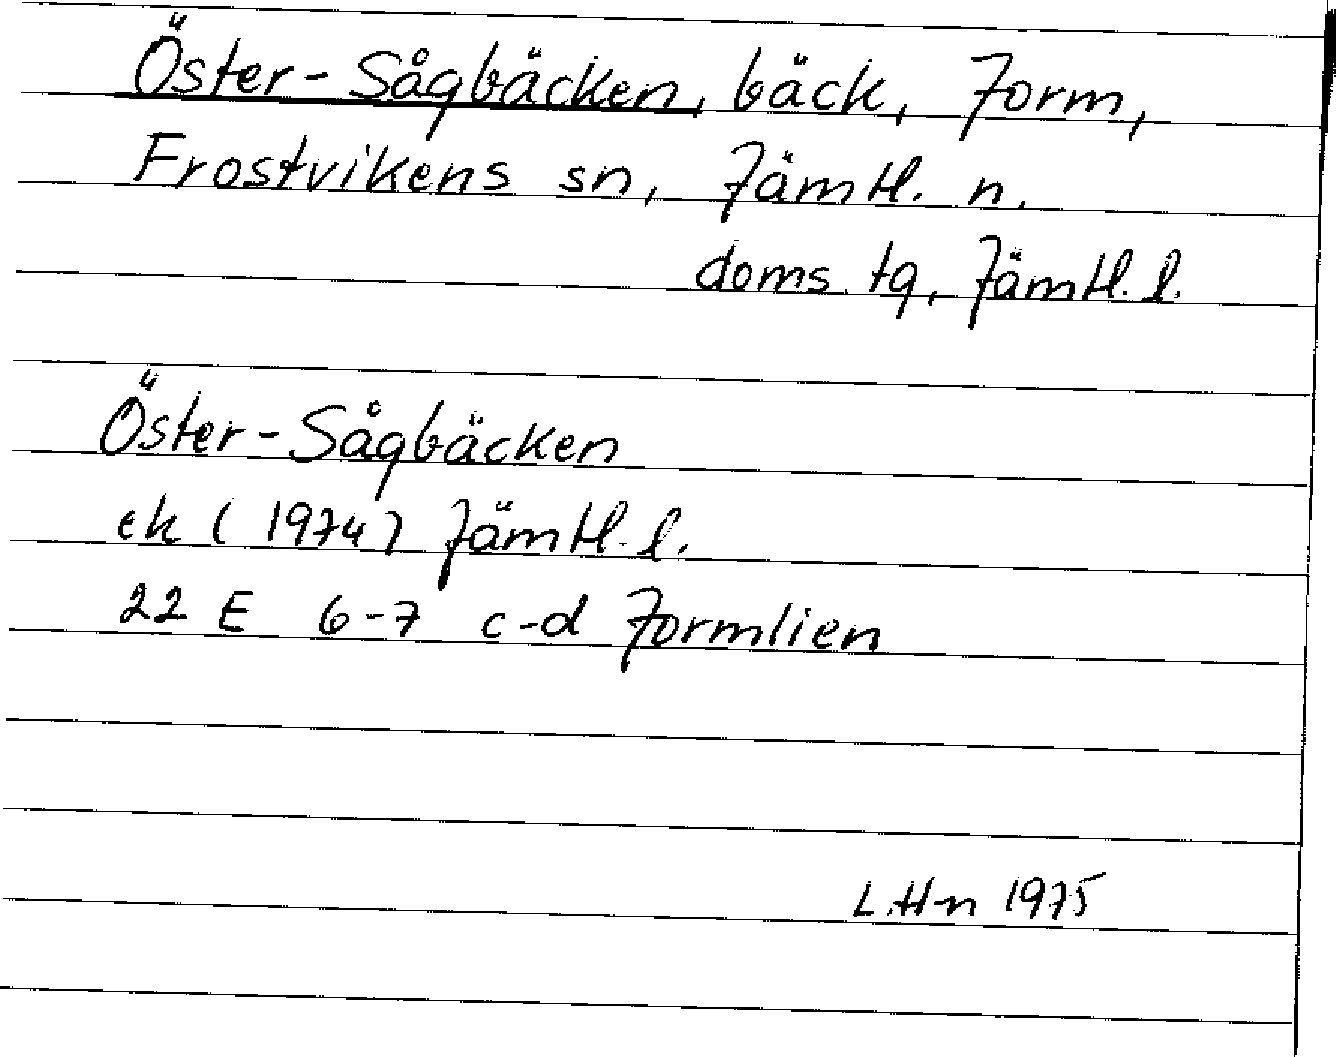 Öster-Sågbäcken, bäck, Jorm,
Frostvikens sn, Jämtl. n.
doms. tg, Jämtl. l.
Öster-Sågbäcken
ek (1974) Jämtl. l.
22 E 6-7 c-d Jormlien
L.H-n 1975